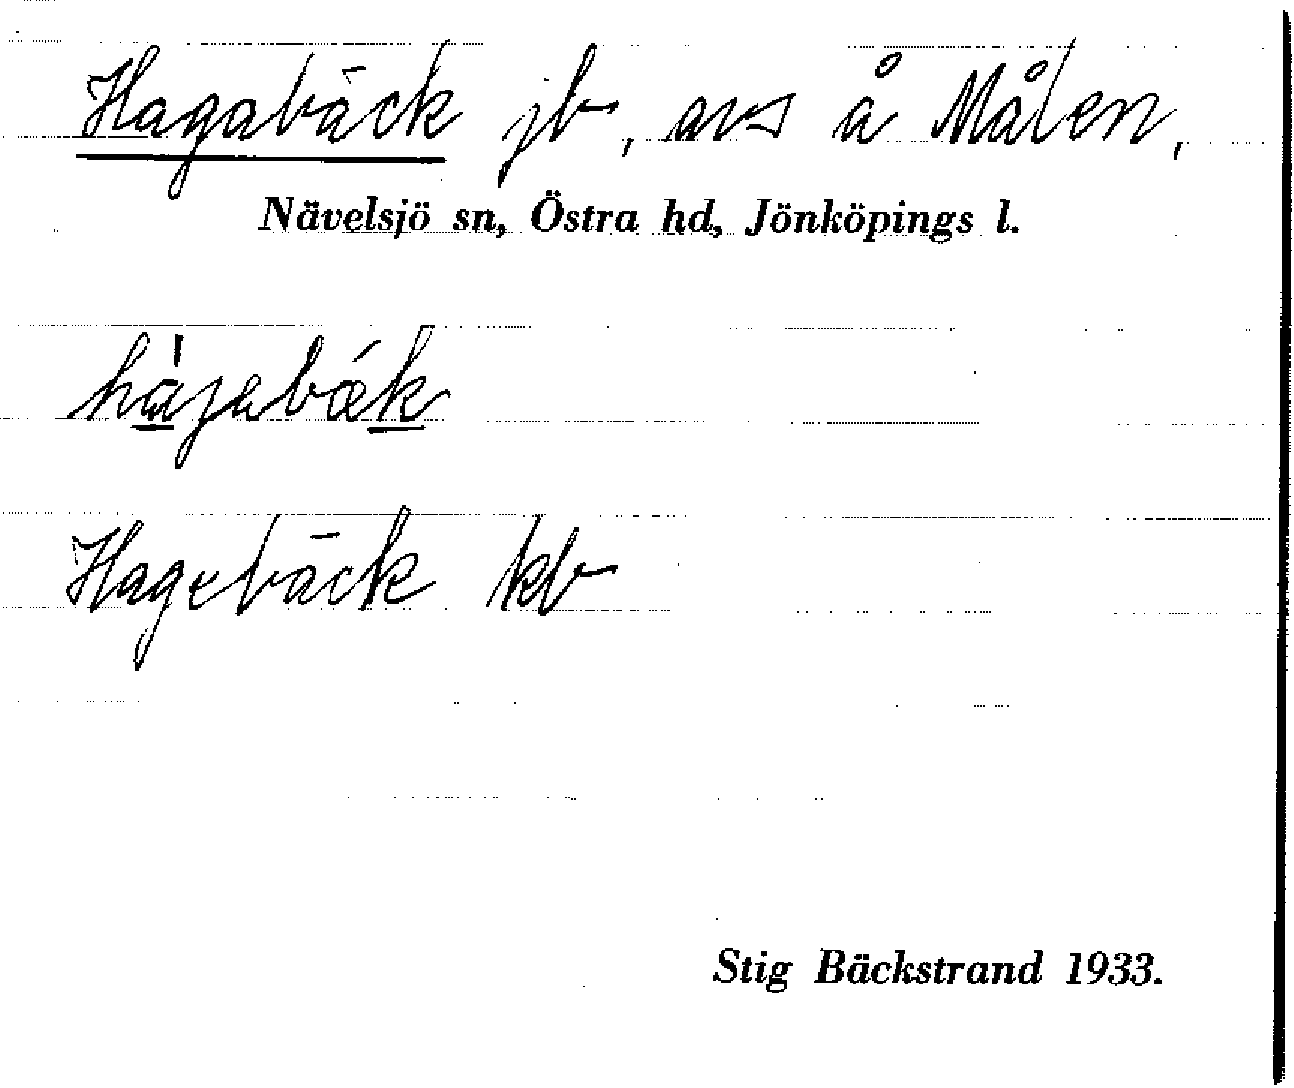 Hagabäck jb, avs å Målen,
Nävelsjö sn, Östra hd, Jönköpings l.
hàgabǽk
Hagebäck kb
Stig Bäckstrand 1933.